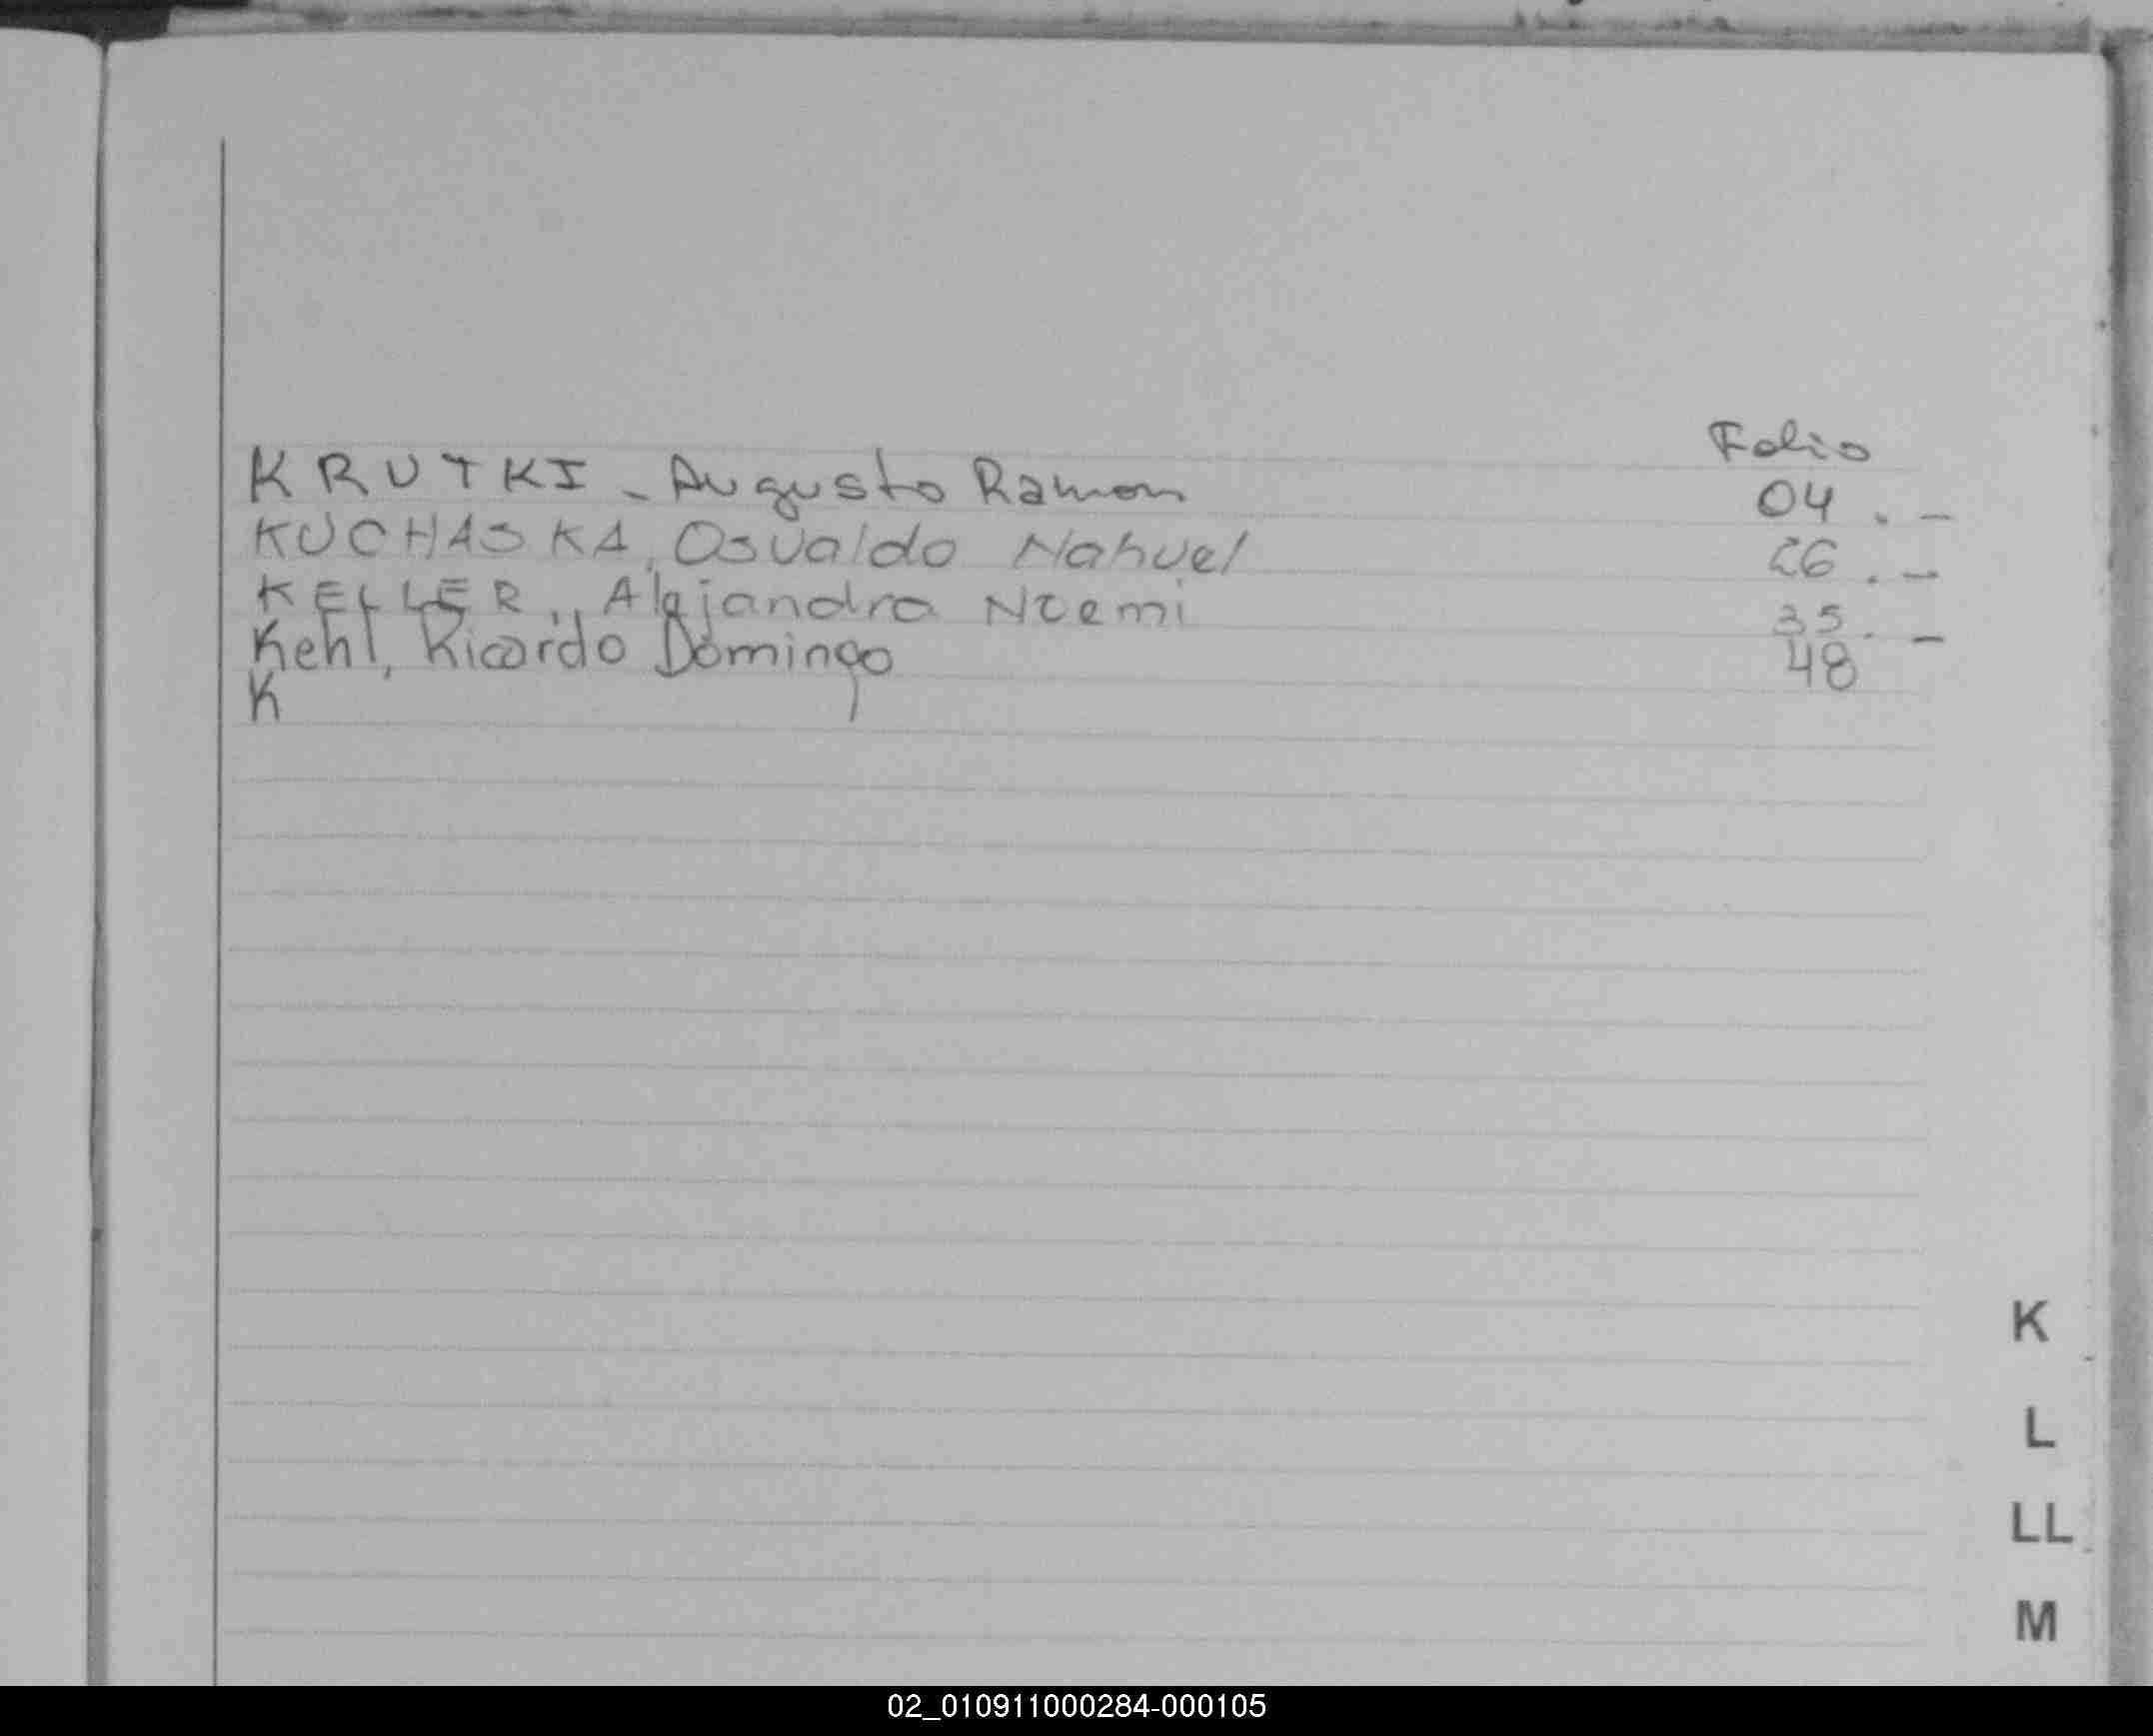 Folio
KRUTKI - Augusto Ramon 04 . -
KUCHASKA, Osvaldo Nahuel 26 . -
KELLER, Alejandra Noemi 35 . -
Kehl, Ricardo Domingo 48
K
K
L
LL
M
02_010911000284-000105